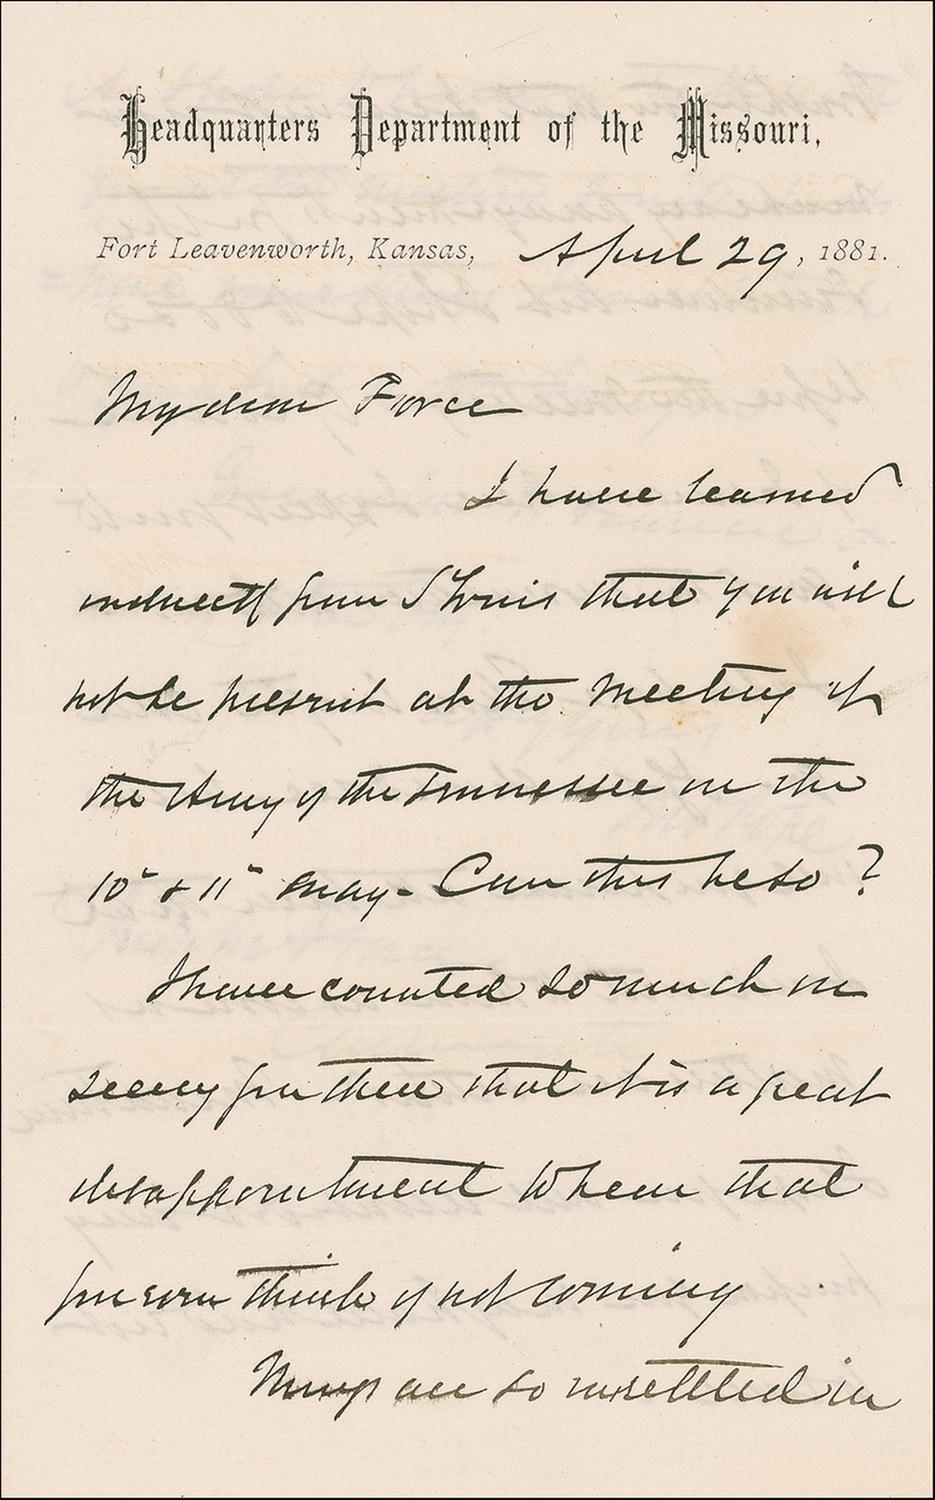 Headquarters Department of the Missouri,
Fort Leavenworth, Kansas, April 29, 1881.
My dear Force
I have learned
indirectly from St Louis that you will
not be present at the meeting of
the Army of the Tennessee on the
10" & 11" May - Can this be so ?
I have counted so much on
seeing you there that it is a great
disappointment to hear that
you even think of not coming
Things are so unsettled in